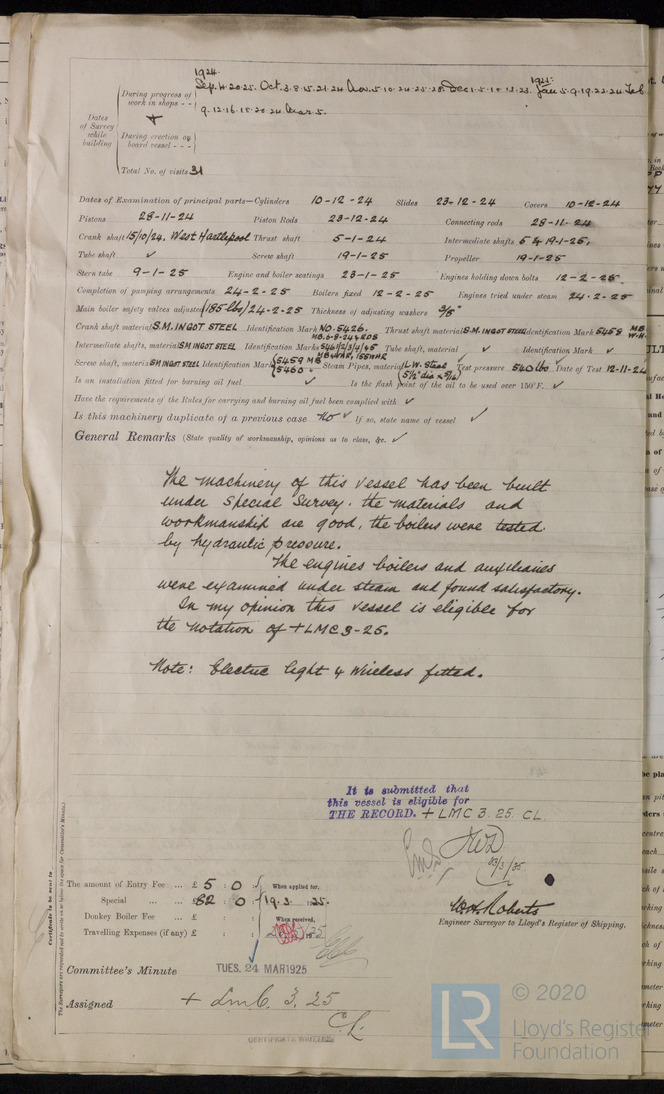 1924. 1925.
Dates of Survey while building
During progress of work in shops - - Sep. 4. 20. 25. Oct. 3. 8. 15. 21. 24. Nov. 5. 10. 24. 25. 28. Dec. 1. 5. 10. 12. 23. Jan 5. 9. 19. 22. 24. Feb
9. 12. 16. 18. 20. 24. Mar. 5.
During erection on board vessel - - -
Total No. of visits 31
Dates of Examination of principal parts—Cylinders 10-12-24 Slides 23-12-24 Covers 10-12-24
Pistons 28-11-24 Piston Rods 23-12-24 Connecting rods 28-11-24
Crank shaft 15/10/24. West Hartlepool Thrust shaft 5-1-24 Intermediate shafts 5 & 19-1-25.
Tube shaft ✓ Screw shaft 19-1-25 Propeller 19-1-25
Stern tube 9-1-25 Engine and boiler seatings 23-1-25 Engines holding down bolts 12-2-25.
Completion of pumping arrangements 24-2-25 Boilers fixed 12-2-25 Engines tried under steam 24.2-25
Main boiler safety valves adjusted (185 lbs) 24-2-25 Thickness of adjusting washers
Crank shaft material S.M. INGOT STEEL Identification Mark NO. 5426. Thrust shaft material S.M. INGOT STEEL Identification Mark 5458 MB W.H.
Intermediate shafts, material SM INGOT STEEL Identification Marks Tube shaft, material ✓ Identification Mark ✓
Screw shaft, material SM INGOT STEEL Identification Mark 5459 MB 5460 Steam Pipes, material L.W. Steel Test pressure 540 lbs Date of Test 12-11-24
Is an installation fitted for burning oil fuel ✓ Is the flash point of the oil to be used over 150°F. ✓
Have the requirements of the Rules for carrying and burning oil fuel been complied with ✓
Is this machinery duplicate of a previous case No ✓ If so, state name of vessel ✓
General Remarks (State quality of workmanship, opinions as to class, &c. ✓
The machinery of this vessel has been built
under Special Survey. the materials and
workmanship are good, the boilers were tested
by hydraulic pressure.
The engines boilers and auxiliaries
were examined under steam and found satisfactory.
In my opinion this vessel is eligible for
the notation of +LMC 3-25.
Note: Electric light & Wireless fitted.
It is submitted that
this vessel is eligible for
THE RECORD. + LMC 3. 25. CL.
W.H. Roberts
Engineer Surveyor to Lloyd's Register of Shipping.
The amount of Entry Fee ... £ 5 : 0 : When applied for,
Special ... ... £ 82 : 0 : 19. 3. 1925.
Donkey Boiler Fee ... £ : : When received,
Travelling Expenses (if any) £ : :
Committee's Minute TUES. 24 MAR 1925
Assigned + Lmc. 3. 25
C.L.
CERTIFICATE WRITTEN
Certificate to be sent to
(The Surveyors are requested not to write on or below the space for Committee's Minute.)
LR © 2020
Lloyd's Register
Foundation